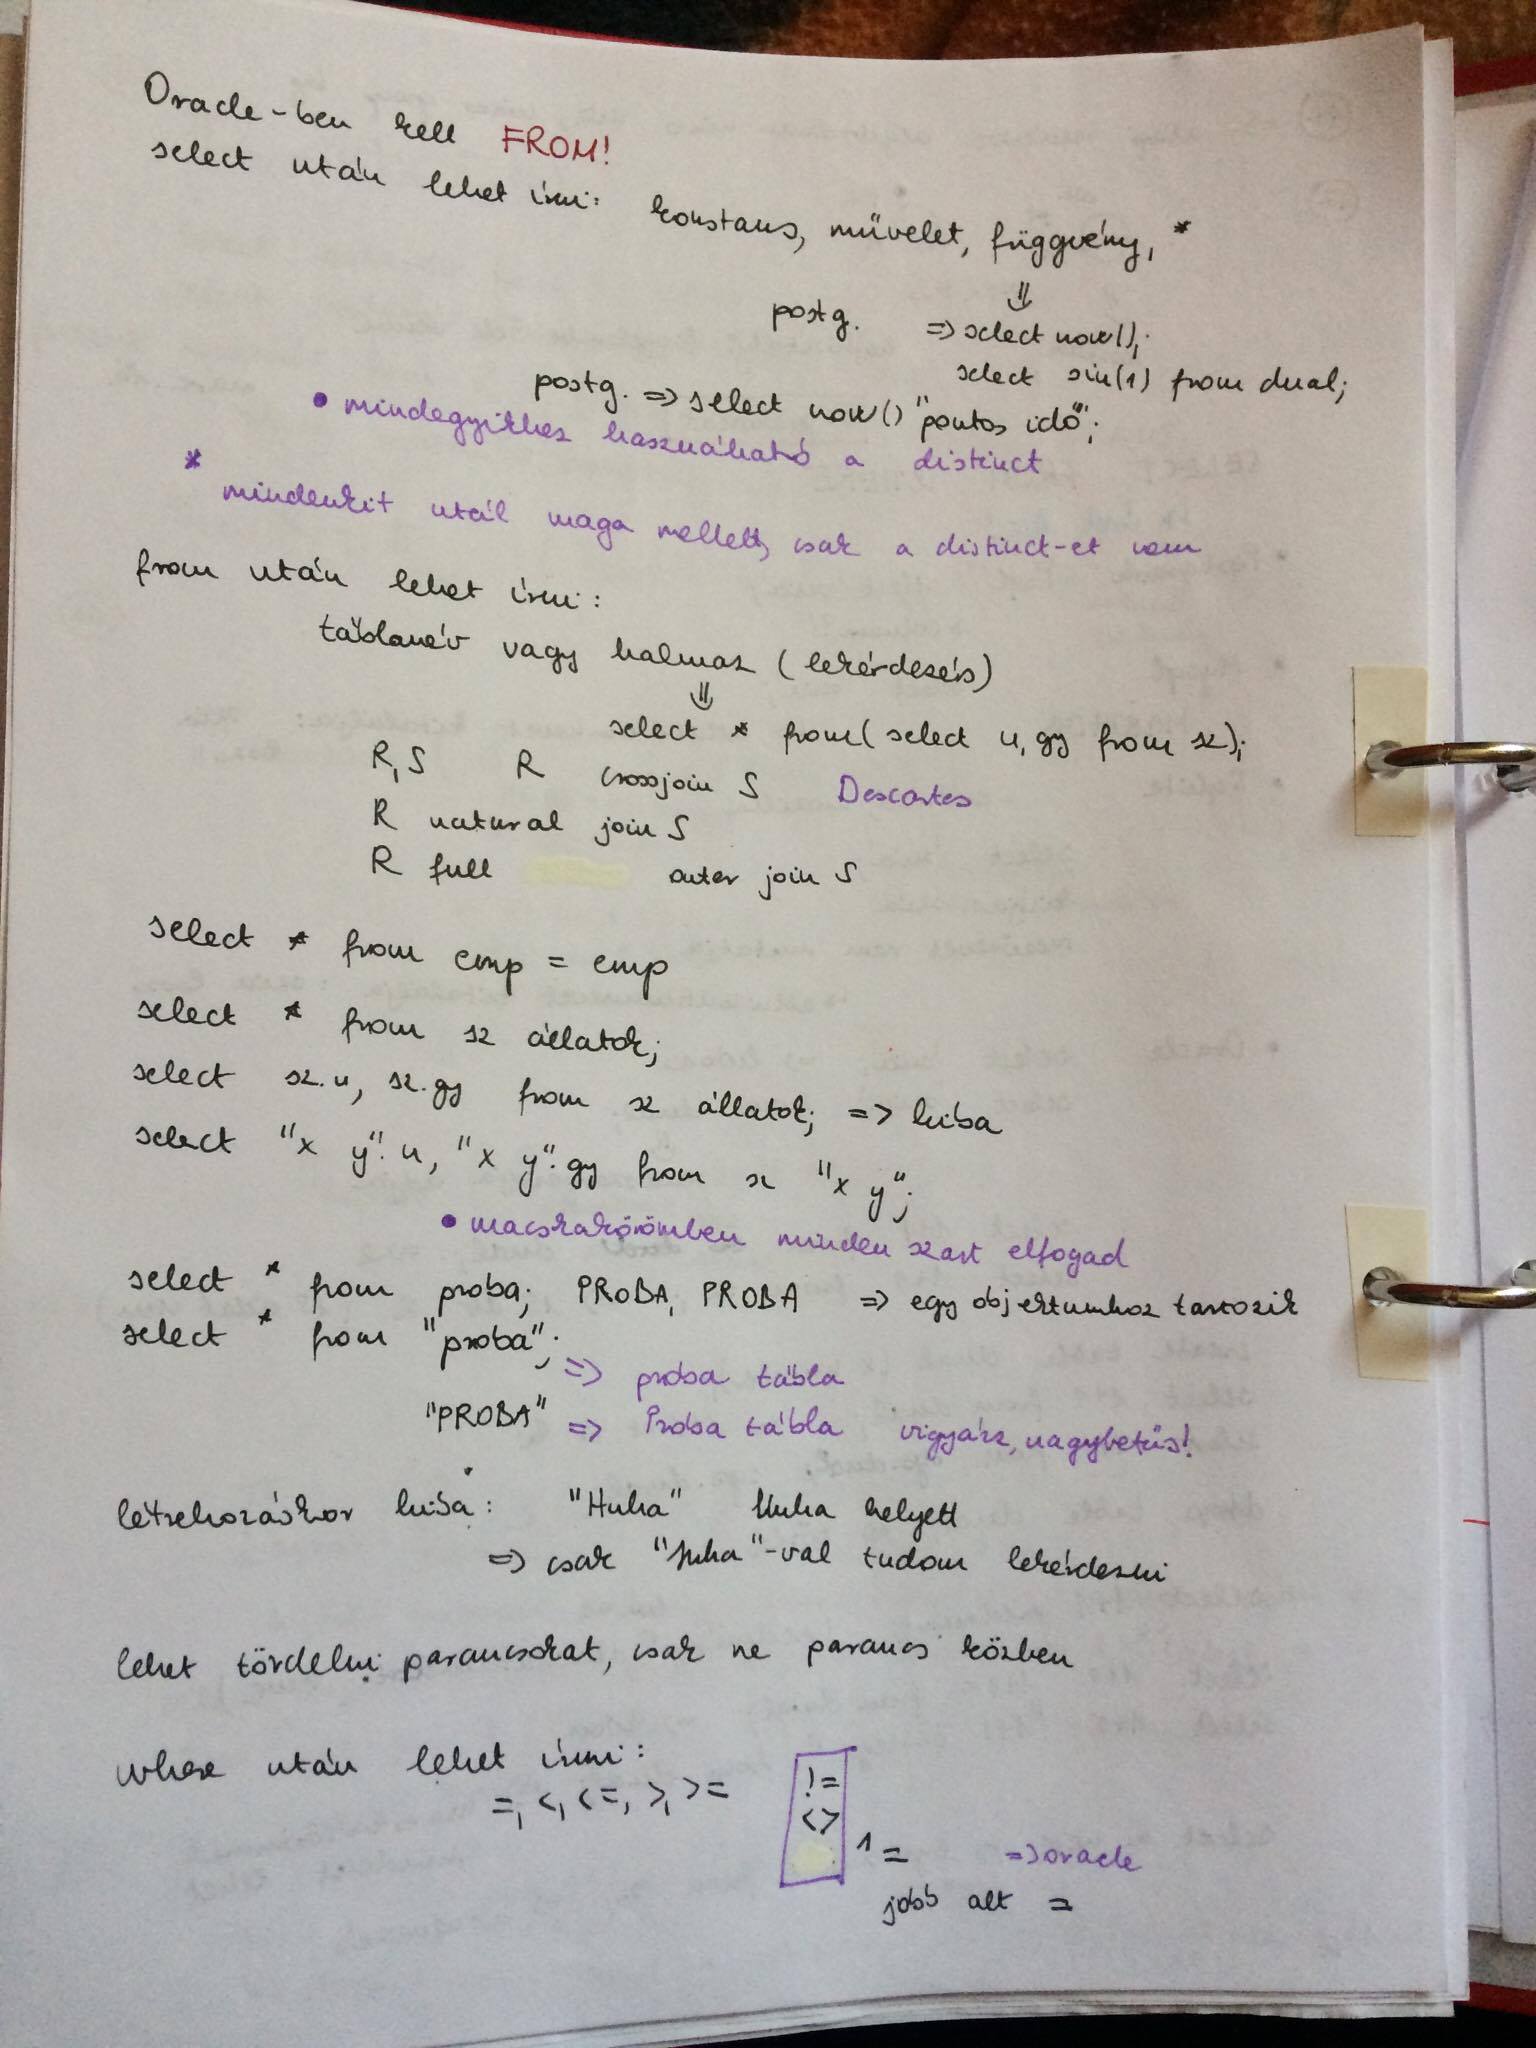 Oracle-ben kell FROM!
select után lehet írni: konstans, művelet, függvény, *
⇓
postg. => select now();
select sin(1) from dual;
postg. => select now() "pontos idő";
• mindegyikhez használható a distinct
* mindenkit utál maga mellett, csak a distinct-et nem
from után lehet írni:
táblanév vagy halmaz (lekérdezés)
⇓
select * from(select n, gy from sz);
R, S R crossjoin S Descartes
R natural join S
R full outer join S
select * from emp = emp
select * from sz állatok;
select sz.n, sz.gy from sz állatok; => hiba
select "x y".n, "x y".gy from sz "x y";
• macskakörömben minden szart elfogad
select * from proba; PROBA, PROBA => egy objektumhoz tartozik
select * from "proba";
=> próba tábla
"PROBA" => Próba tábla vigyázz, nagybetűs!
létrehozáskor hiba: "Huha" Huha helyett
=> csak "Huha"-val tudom lekérdezni
lehet tördelni parancsokat, csak ne parancs közben
where után lehet írni:
=, <, <=, >, >=
!=
<>
^= => oracle
jobb alt =